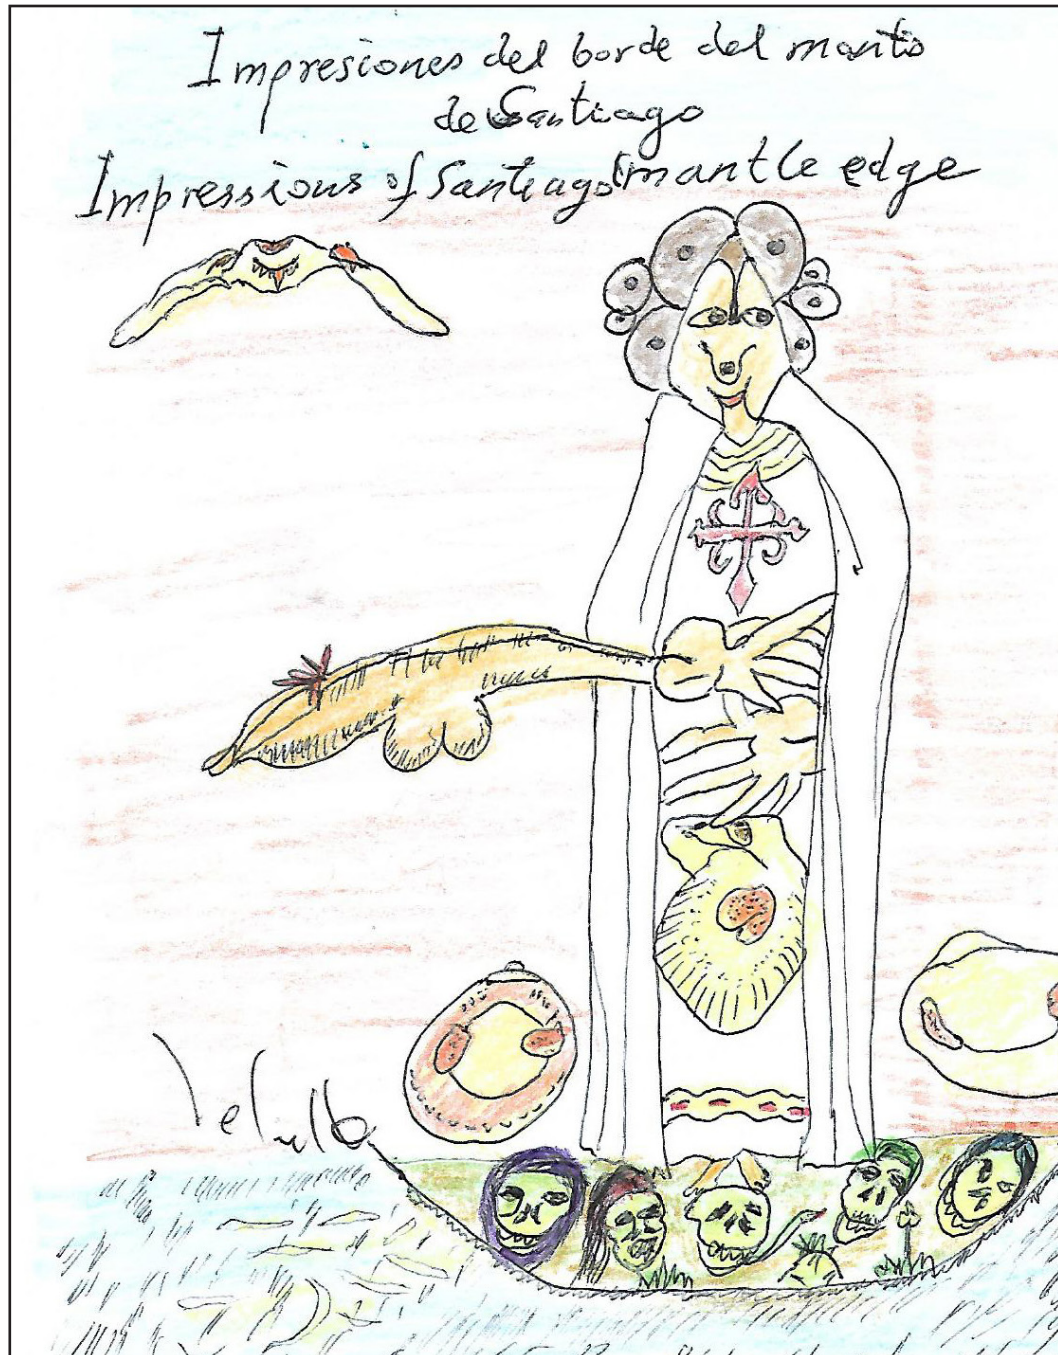 Impresiones del borde del manto
de Santiago
Impressions of Santiago mantle edge